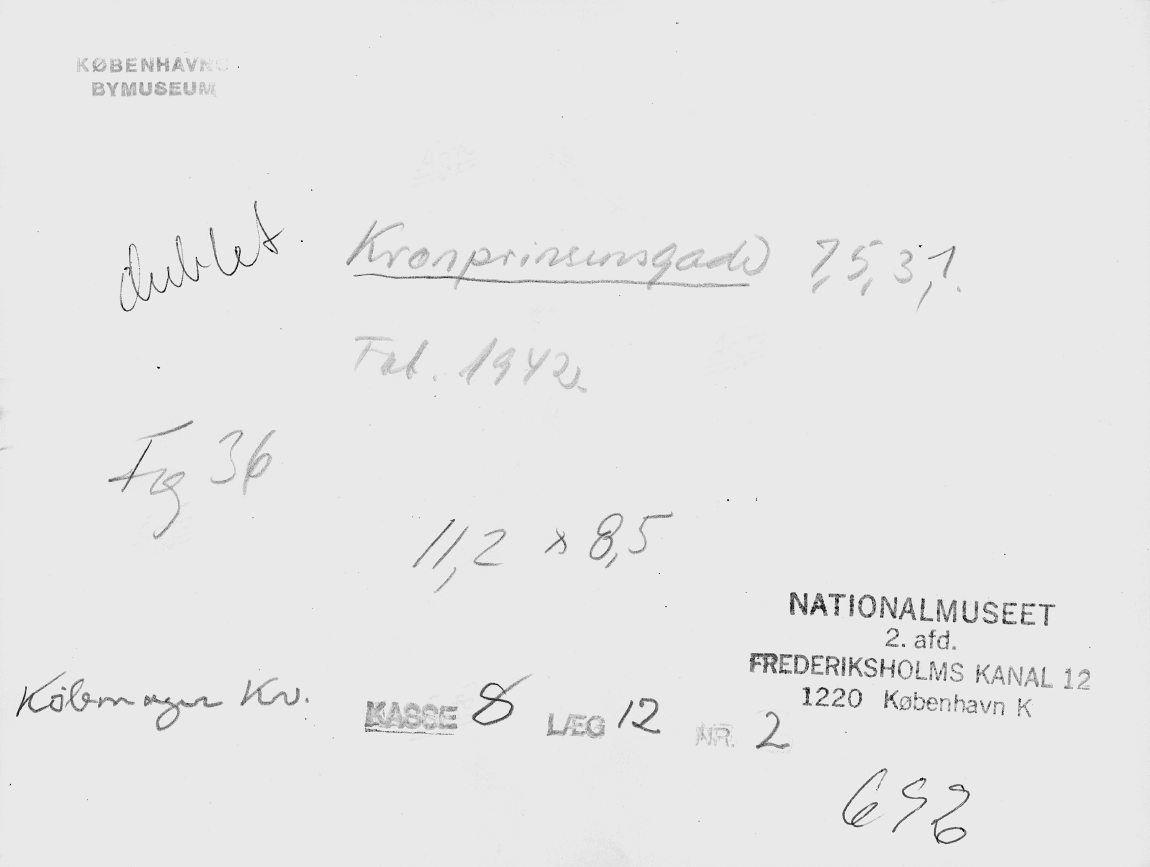 KØBENHAVNS
BYMUSEUM
dublet.
Kronprinsensgade 7, 5, 3, 1.
Fot. 1942.
Fig 36
11,2 x 8,5
NATIONALMUSEET
2. afd.
FREDERIKSHOLMS KANAL 12
1220 København K
Købmager Kv.
KASSE 8 LÆG 12 NR. 2